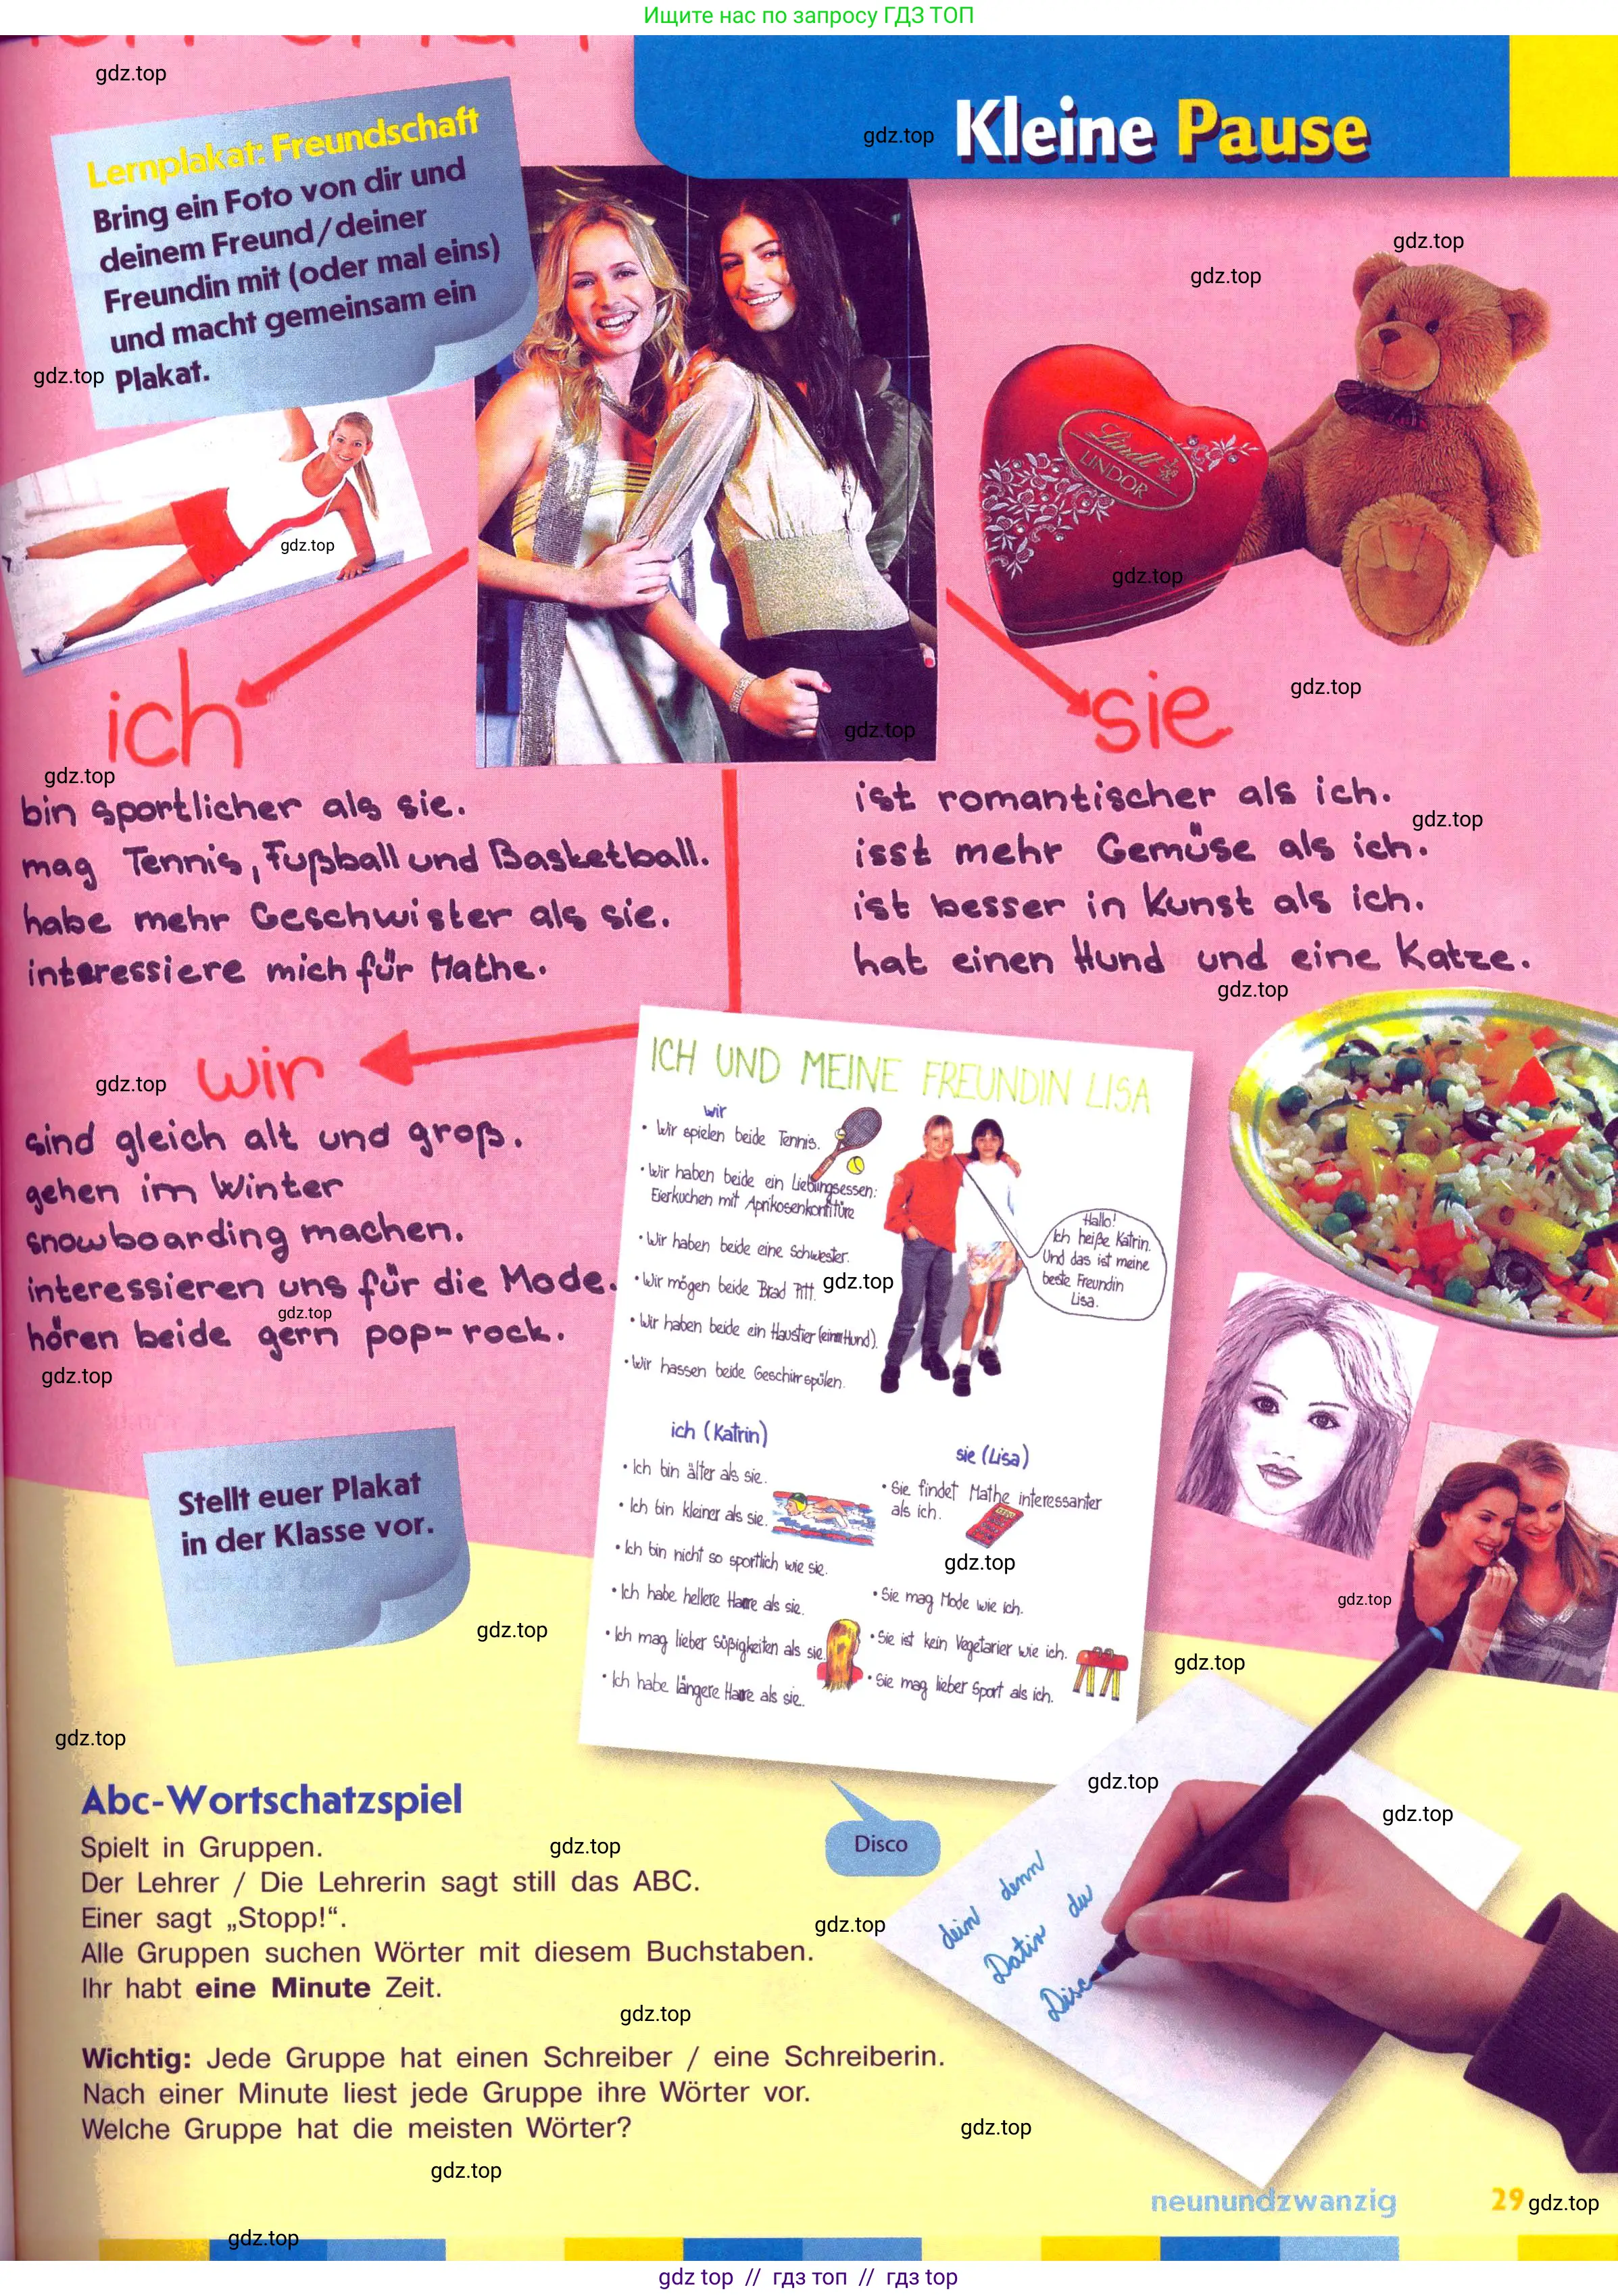 Ищите нас по запросу ГДЗ ТОП
Kleine Pause
Lernplakat: Freundschaft
Bring ein Foto von dir und
deinem Freund/deiner
Freundin mit (oder mal eins)
und macht gemeinsam ein
Plakat.
Lindt
LINDOR
ich
bin sportlicher als sie.
mag Tennis, Fußball und Basketball.
habe mehr Geschwister als sie.
interessiere mich für Mathe.
sie
ist romantischer als ich.
isst mehr Gemüse als ich.
ist besser in Kunst als ich.
hat einen Hund und eine Katze.
wir
sind gleich alt und groß.
gehen im Winter
snowboarding machen.
interessieren uns für die Mode.
hören beide gern pop-rock.
ICH UND MEINE FREUNDIN LISA
wir
• Wir spielen beide Tennis.
• Wir haben beide ein Lieblingsessen:
Eierkuchen mit Aprikosenkonfitüre
• Wir haben beide eine Schwester.
• Wir mögen beide Brad Pitt.
• Wir haben beide ein Haustier (einen Hund).
• Wir hassen beide Geschirrspülen.
Hallo!
Ich heiße Katrin.
Und das ist meine
beste Freundin
Lisa.
ich (Katrin)
• Ich bin älter als sie.
• Ich bin kleiner als sie.
• Ich bin nicht so sportlich wie sie.
• Ich habe hellere Haare als sie.
• Ich mag lieber Süßigkeiten als sie.
• Ich habe längere Haare als sie.
sie (Lisa)
• Sie findet Mathe interessanter
als ich.
• Sie mag Mode wie ich.
• Sie ist kein Vegetarier wie ich.
• Sie mag lieber Sport als ich.
Stellt euer Plakat
in der Klasse vor.
Abc-Wortschatzspiel
Spielt in Gruppen.
Der Lehrer / Die Lehrerin sagt still das ABC.
Einer sagt „Stopp!“.
Alle Gruppen suchen Wörter mit diesem Buchstaben.
Ihr habt eine Minute Zeit.
Wichtig: Jede Gruppe hat einen Schreiber / eine Schreiberin.
Nach einer Minute liest jede Gruppe ihre Wörter vor.
Welche Gruppe hat die meisten Wörter?
Disco
dein denn
Dativ du
Disc
neunundzwanzig 29
gdz.top
gdz top // гдз топ // гдз top